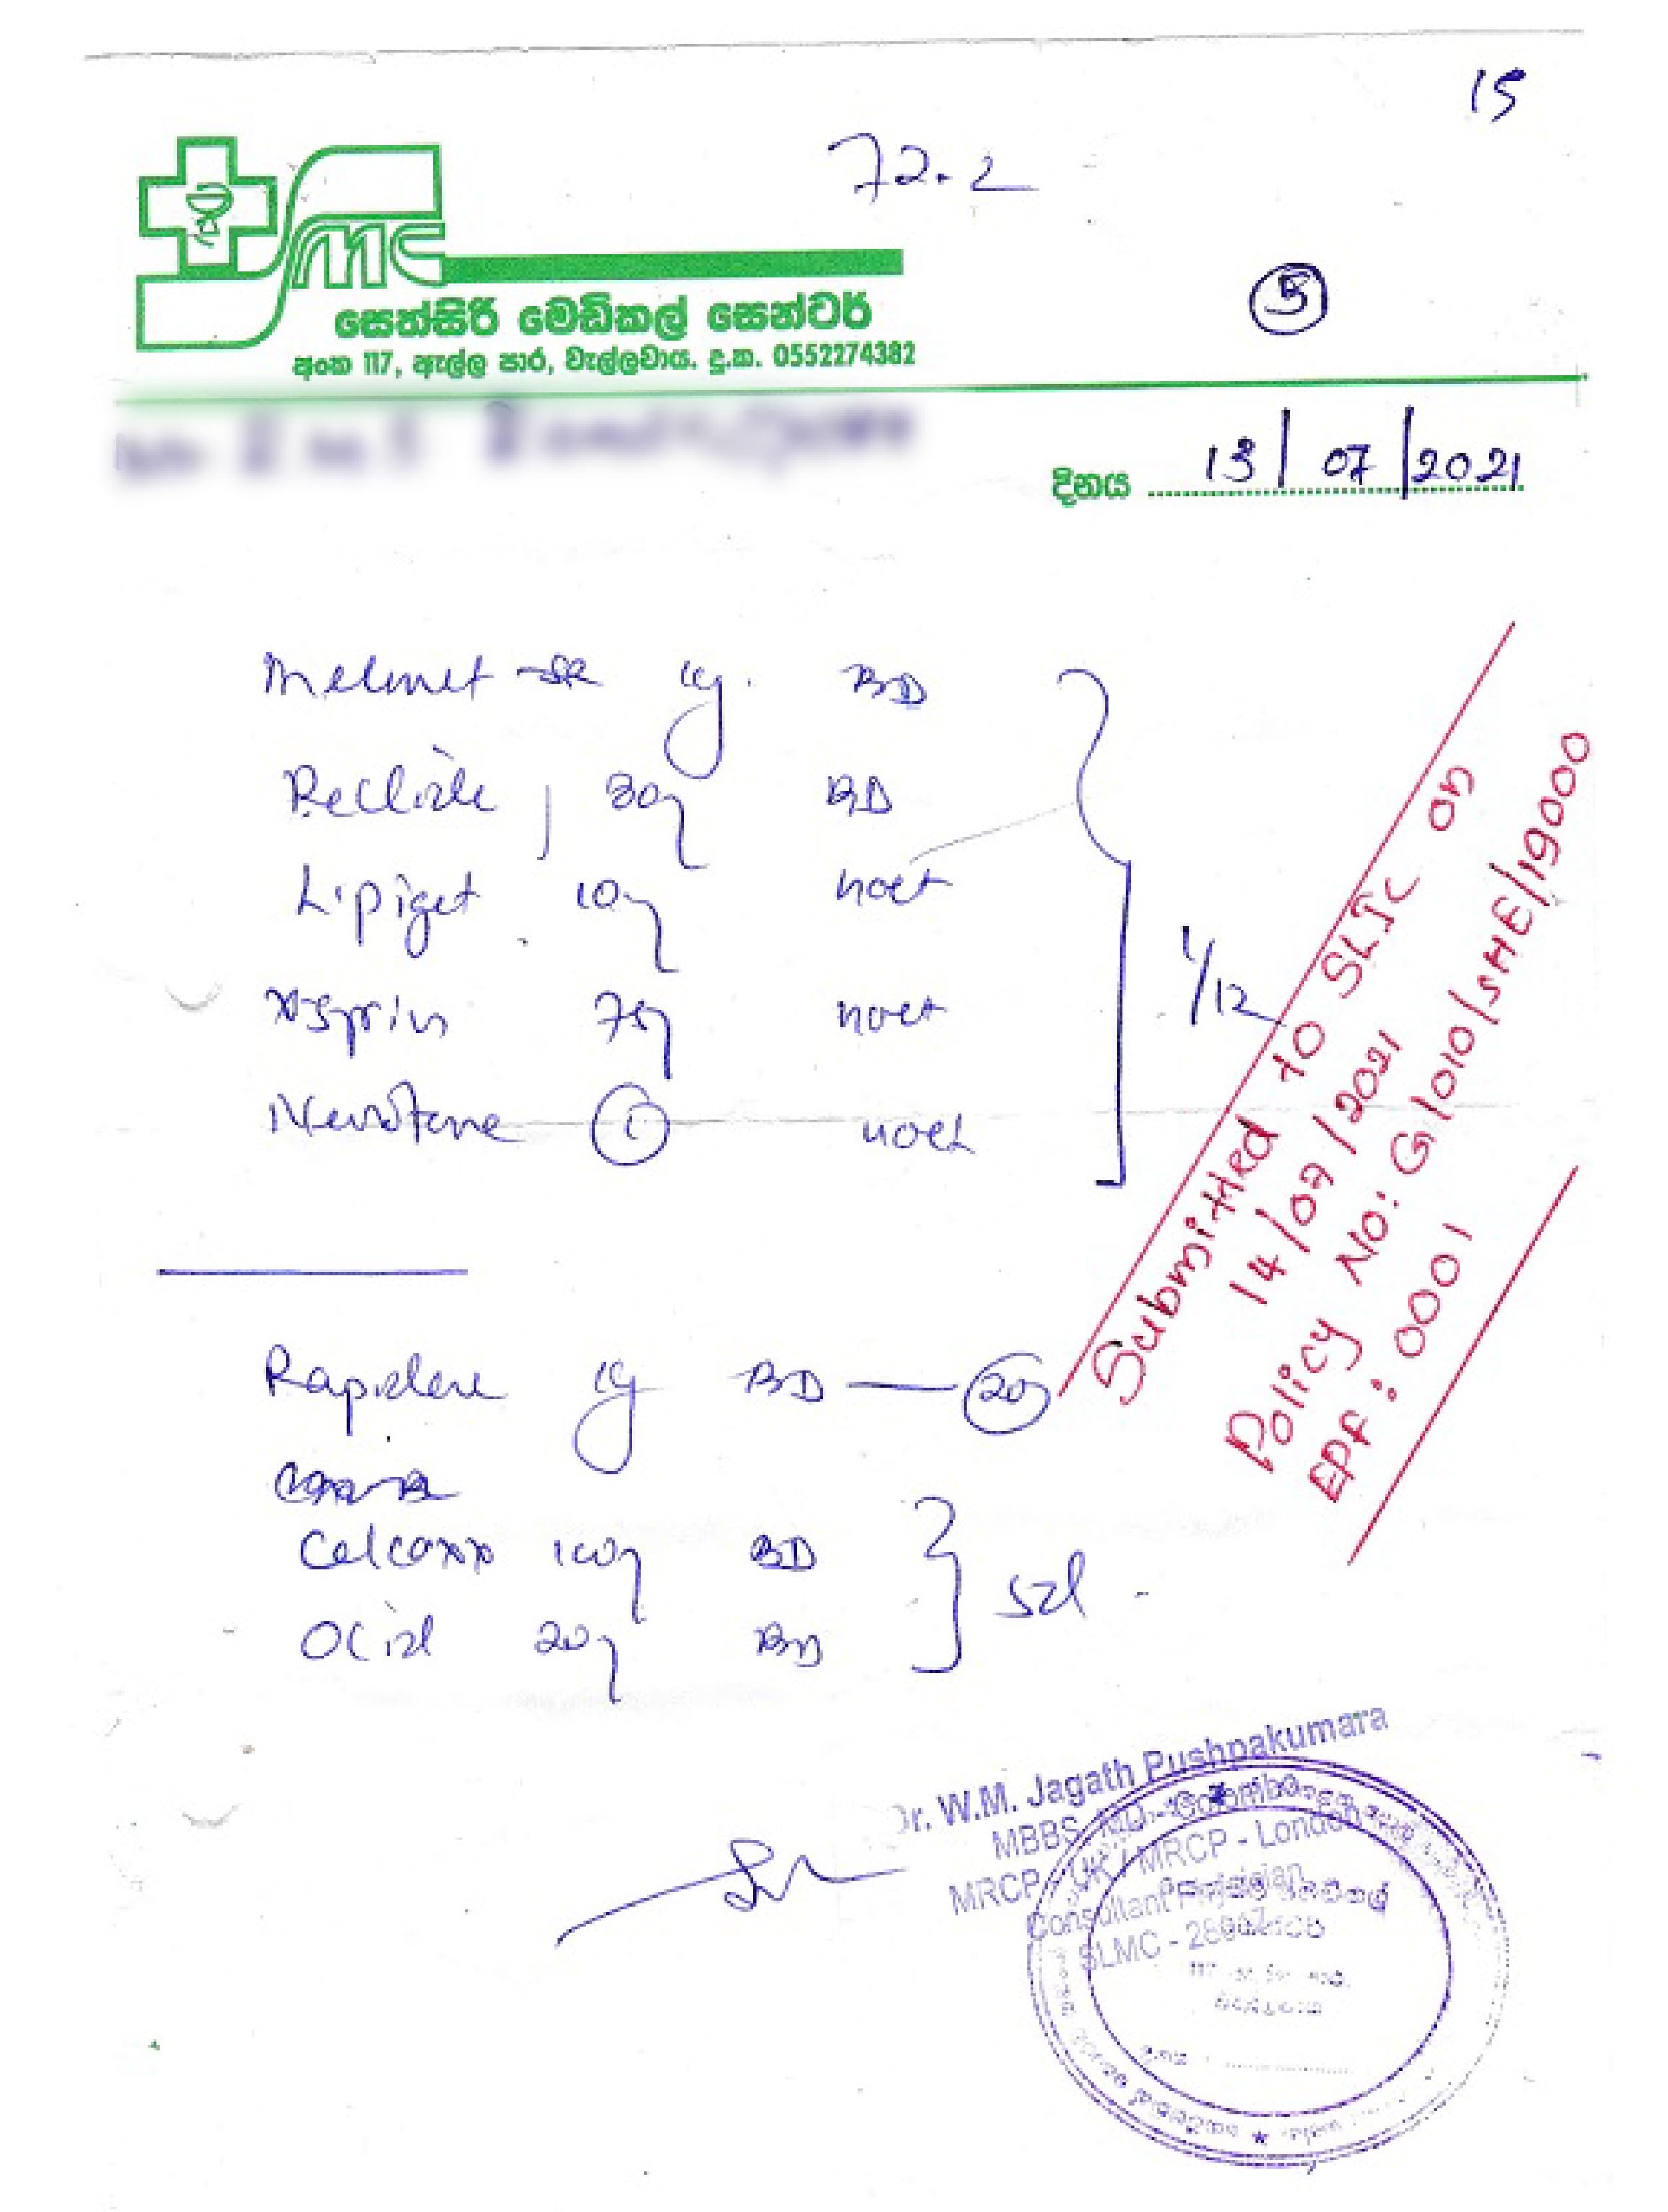 15
72.2
SMC
සෙත්සිරි මෙඩිකල් සෙන්ටර්
අංක 117, ඇල්ල පාර, වැල්ලවාය. දු.ක. 0552274382
5
දිනය 13/07/2021
Melmet -SR 1g. BD
Reclide 30mg BD
Lipiget 10mg nocte
75mg nocte
Neurotone 1 nocte
1/12
Submitted to SLIC on
14/07/2021
Policy No: G/010/SHE/19000
EPF: 0001
Rapidene 1g BD — 20
Celcoxx 100mg BD
Ocid 20mg BD
5d
Dr. W.M. Jagath Pushpakumara
MBBS, MD - Colombo
MRCP - UK / MRCP - London
Consultant Physician
SLMC -